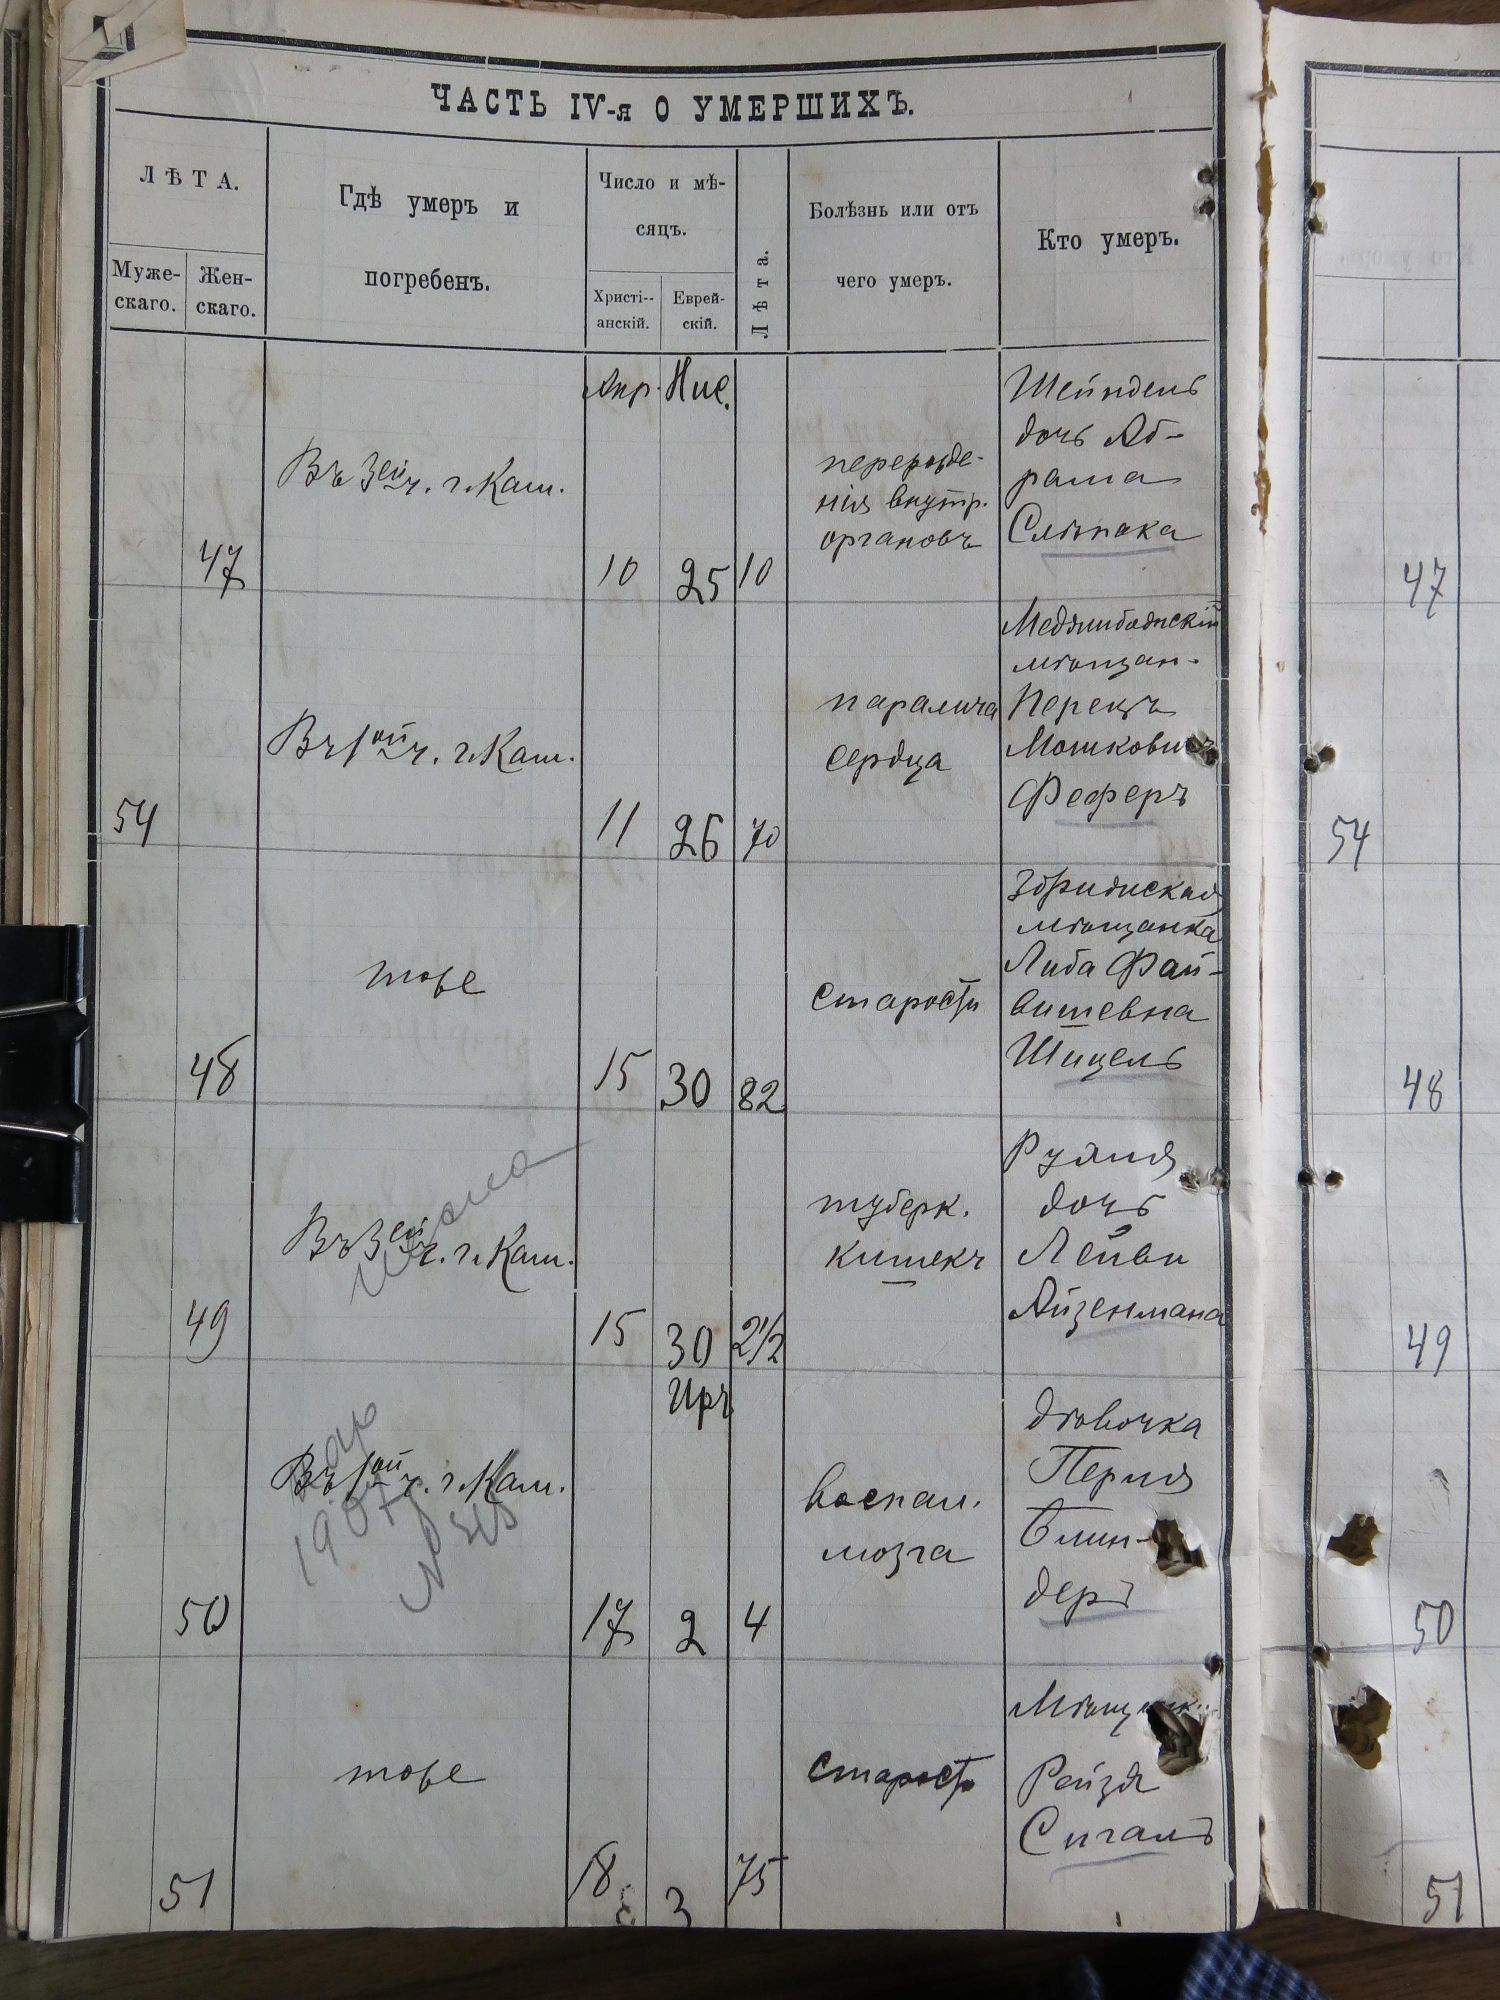 ЧАСТЬ IV-я О УМЕРШИХЪ.
ЛѢТА.
Муже-
скаго.
Жен-
скаго.
Гдѣ умеръ и
погребенъ.
Число и мѣ-
сяцъ.
Христі--
анскій.
Еврей-
скій.
Лѣта.
Болѣзнь или отъ
чего умеръ.
Кто умеръ.
Апр. Нис.
47
Въ 3ей ч. г. Кам.
10 25 10
перерожде-
нія внутр.
органовъ
Шейндель
дочь Аб-
рама
Слѣпака
47
54
Въ 1ой ч. г. Кам.
11 26 70
паралича
сердца
Меджибожскій
мѣщан.
Перецъ
Мошковичъ
Феферъ
54
48
тоже
15 30 82
старости
мѣщанка
Либа Фай-
вишевна
Шпицель
48
49
Въ 3ей ч. г. Кам.
15 30 2 1/2
туберк.
кишекъ
Рухля
дочь
Лейви
Айзенмана
49
Иръ
50
Въ 1ой ч. г. Кам.
1907
17 2 4
воспал.
мозга
дѣвочка
Перля
Блин-
деръ
50
51
тоже
18 3 75
старости
Рейзя
Сигалъ
51